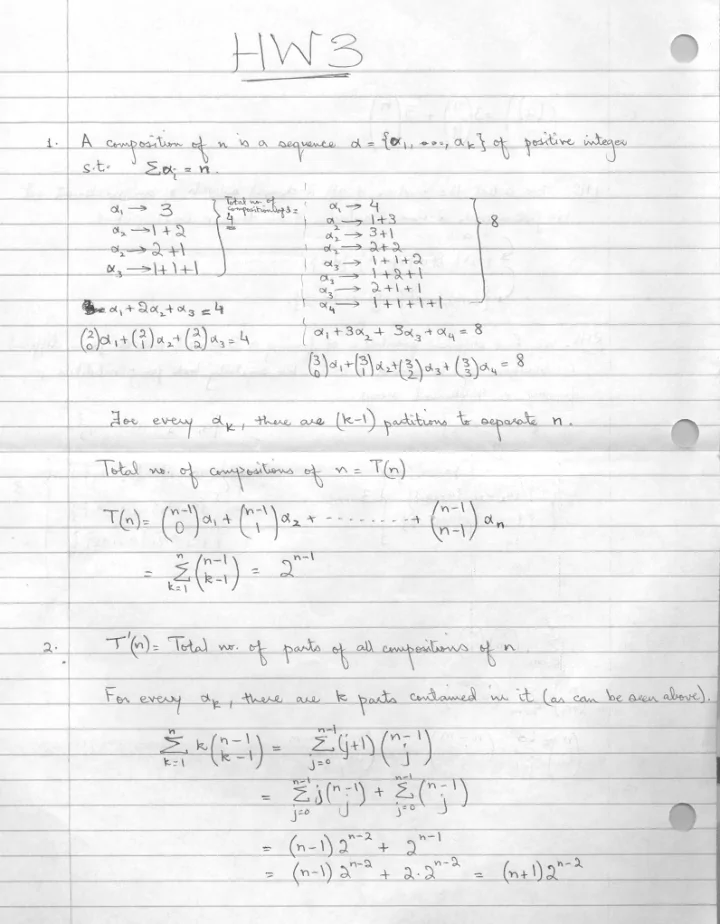 HW3
1. A composition of n is a sequence α = {α₁, ..., αₖ} of positive integer
s.t. Σαᵢ = n.
α₁ → 3
α₂ → 1+2
α₂ → 2+1
α₃ → 1+1+1
Total no. of
4
α₁ → 4
α₂ → 1+3
α₂ → 3+1
α₂ → 2+2
α₃ → 1+1+2
α₃ → 1+2+1
α₃ → 2+1+1
α₄ → 1+1+1+1
8
α₁ + 2α₂ + α₃ = 4
(2 0)α₁ + (2 1)α₂ + (2 2)α₃ = 4
α₁ + 3α₂ + 3α₃ + α₄ = 8
(3 0)α₁ + (3 1)α₂ + (3 2)α₃ + (3 3)α₄ = 8
For every αₖ, there are (k-1) partitions to separate n.
Total no. of compositions of n = T(n)
T(n) = (n-1 0)α₁ + (n-1 1)α₂ + - - - - - - - - + (n-1 n-1)αₙ
= Σₖ₌₁ⁿ (n-1 k-1) = 2ⁿ⁻¹
2. T'(n) = Total no. of parts of all compositions of n
For every αₖ, there are k parts contained in it (as can be seen above).
Σₖ₌₁ⁿ k(n-1 k-1) = Σⱼ₌₀ⁿ⁻¹ (j+1)(n-1 j)
= Σⱼ₌₀ⁿ⁻¹ j(n-1 j) + Σⱼ₌₀ⁿ⁻¹ (n-1 j)
= (n-1) 2ⁿ⁻² + 2ⁿ⁻¹
= (n-1) 2ⁿ⁻² + 2·2ⁿ⁻² = (n+1) 2ⁿ⁻²